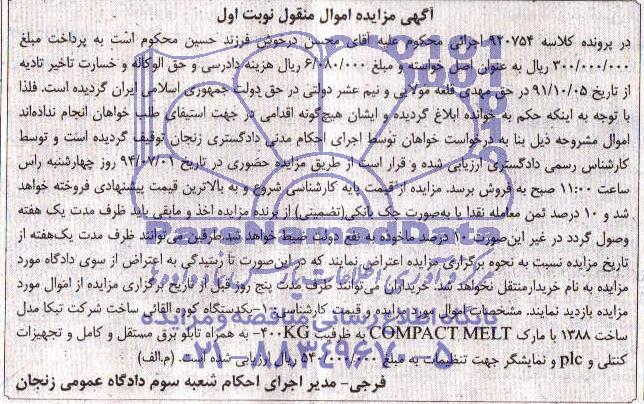 آگهی مزایده اموال منقول نوبت اول
در پرونده کلاسه ۹۲۰۷۵۴ اجرائی محکوم علیه آقای محسن درخوش فرزند حسین محکوم است به پرداخت مبلغ
۳۰۰/۰۰۰/۰۰۰ ریال به عنوان اصل خواسته و مبلغ ۶/۰۸۰/۰۰۰ ریال هزینه دادرسی و حق الوکاله و خسارت تاخیر تادیه
از تاریخ ۹۱/۱۰/۰۵ در حق مهدی قلعه مولایی و نیم عشر دولتی در حق دولت جمهوری اسلامی ایران گردیده است. فلذا
با توجه به اینکه حکم به خوانده ابلاغ گردیده و ایشان هیچ‌گونه اقدامی در جهت استیفای طلب خواهان انجام نداده‌اند
اموال مشروحه ذیل بنا به درخواست خواهان توسط اجرای احکام مدنی دادگستری زنجان توقیف گردیده است و توسط
کارشناس رسمی دادگستری ارزیابی شده و قرار است از طریق مزایده حضوری در تاریخ ۹۴/۰۷/۰۱ روز چهارشنبه راس
ساعت ۱۱:۰۰ صبح به فروش برسد. مزایده از قیمت پایه کارشناسی شروع و به بالاترین قیمت پیشنهادی فروخته خواهد
شد و ۱۰ درصد ثمن معامله نقدا یا به‌صورت چک بانکی(تضمینی) از برنده مزایده اخذ و مابقی باید ظرف مدت یک هفته
وصول گردد در غیر این‌صورت ۱۰ درصد ماخوذه به نفع دولت ضبط خواهد شد.طرفین می‌توانند ظرف مدت یک‌هفته از
تاریخ مزایده نسبت به نحوه برگزاری مزایده اعتراض نمایند که در این‌صورت تا رسیدگی به اعتراض از سوی دادگاه مورد
مزایده به نام خریدارمنتقل نخواهد شد. خریداران می‌توانند ظرف مدت پنج روز قبل از تاریخ برگزاری مزایده از اموال مورد
مزایده بازدید نمایند. مشخصات اموال مورد مزایده و قیمت کارشناسی: ۱-یکدستگاه کوره القائی ساخت شرکت تبکا مدل
ساخت ۱۳۸۸ با مارک COMPACT MELT به ظرفیت ۴۰۰KG- به همراه تابلو برق مستقل و کامل و تجهیزات
کنتلی و plc و نمایشگر جهت تنظیمات به مبلغ ۵۴۰/۰۰۰/۰۰۰ ریال ارزیابی شده است. (م.الف)
فرجی- مدیر اجرای احکام شعبه سوم دادگاه عمومی زنجان
ParsNamadData
۰۲۱-۸۸۳۴۹۶۷۰-۵